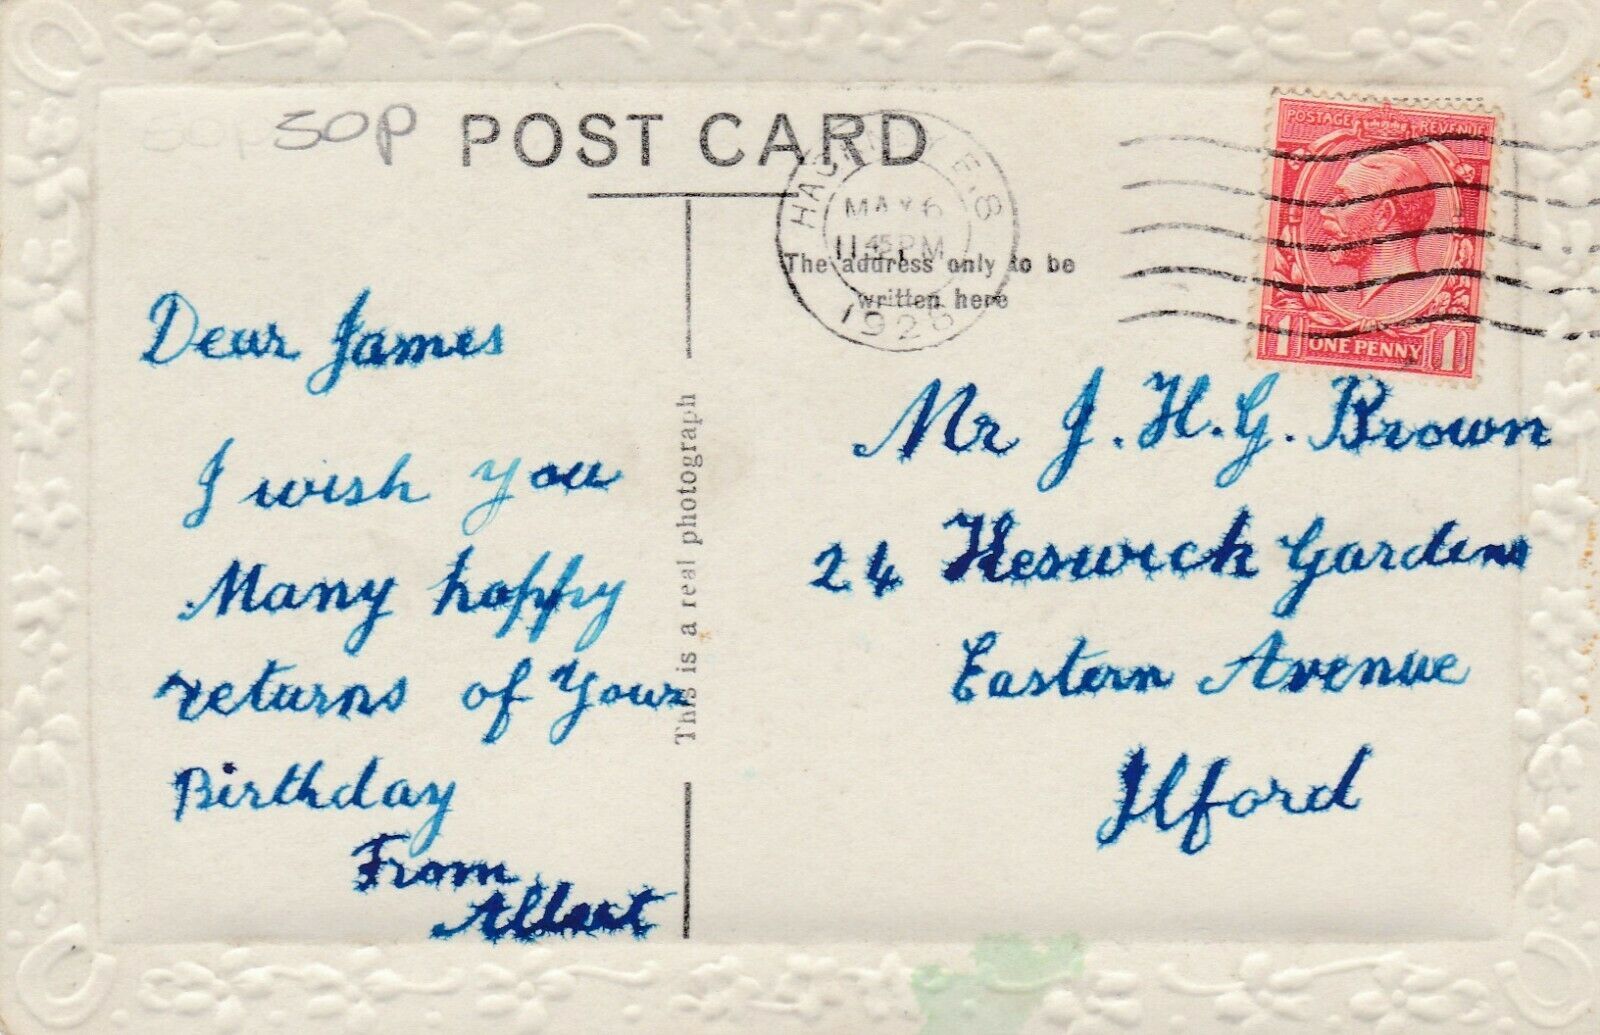 50P
POST CARD
HACKNEY E.8
MAY 6
11 45 PM
1926
POSTAGE REVENUE
1 ONE PENNY 1
The address only to be
written here
This is a real photograph
Dear James
I wish you
Many happy
returns of your
Birthday
From
Albert
Mr J. H. G. Brown
24 Heswick Gardens
Eastern Avenue
Ilford